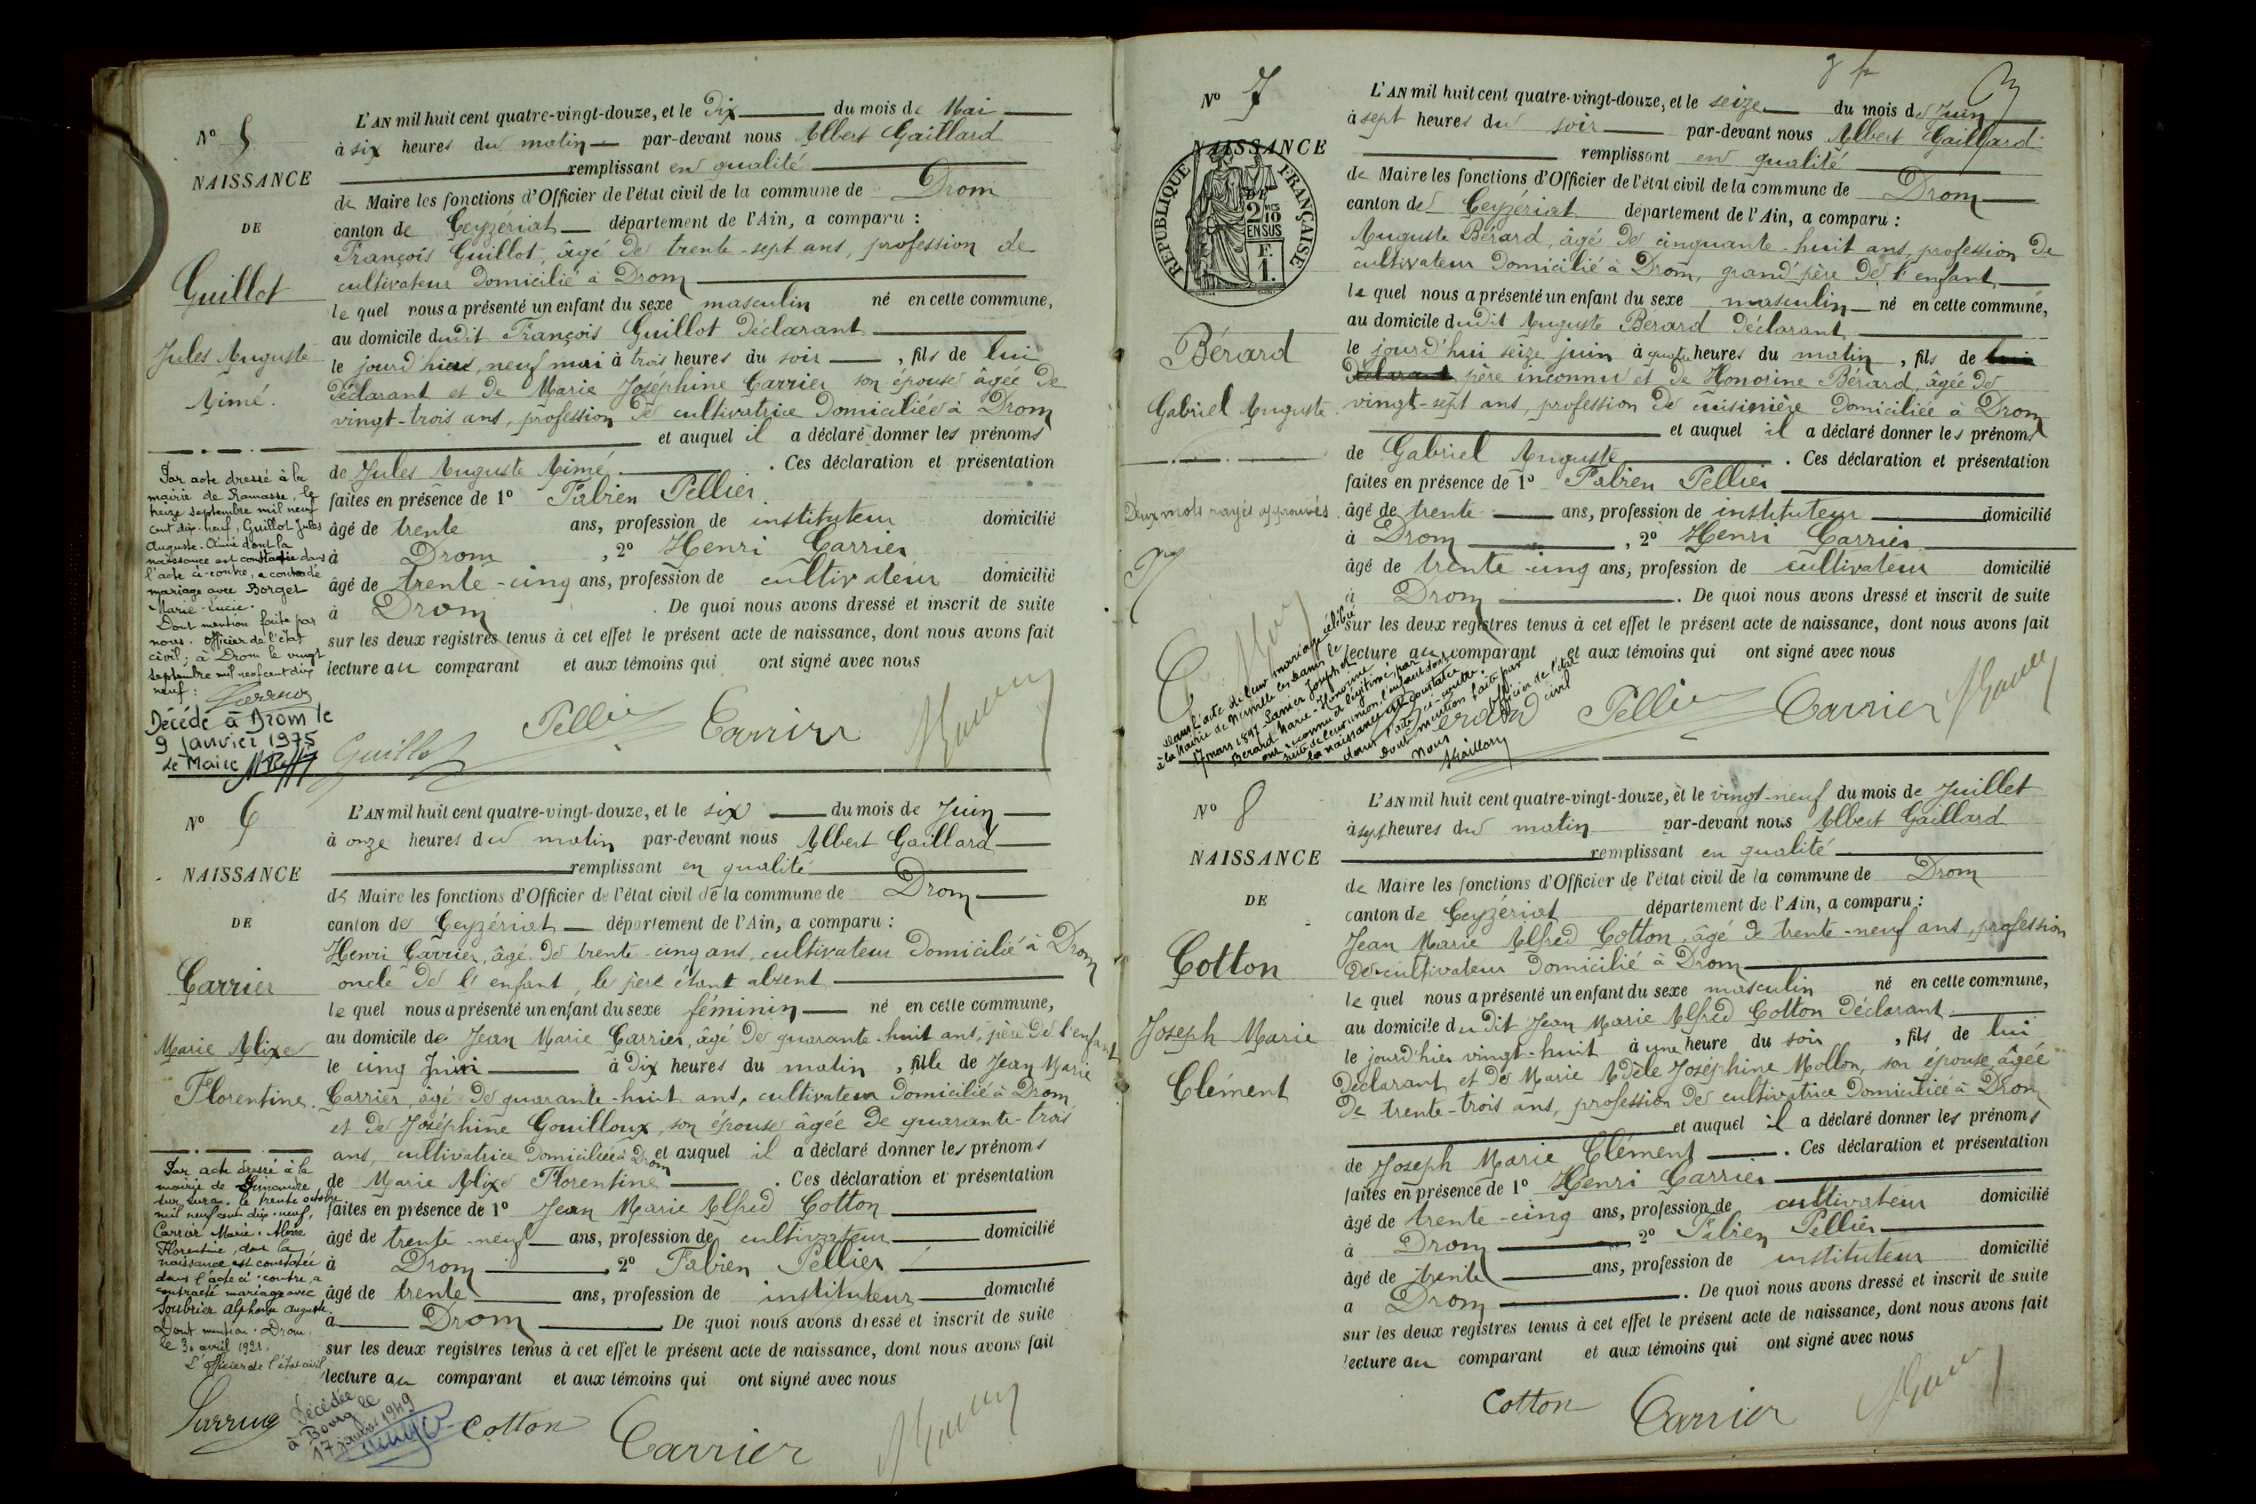 N° 5
NAISSANCE
DE
Guillot
Jules Auguste
Aimé.
L'AN mil huit cent quatre-vingt-douze, et le Dix du mois de Mai
à six heures du matin par-devant nous Albert Gaillard
remplissant en qualité
de Maire les fonctions d'Officier de l'état civil de la commune de Drom
canton de Ceyzériat département de l'Ain, a comparu :
François Guillot, âgé de trente-sept ans, profession de
cultivateur domicilié à Drom
lequel nous a présenté un enfant du sexe masculin né en cette commune,
au domicile dudit François Guillot déclarant
le jourd'hier, neuf mai à trois heures du soir, fils de lui
déclarant et de Marie Joséphine Carrier son épouse âgée de
vingt-trois ans, profession de cultivatrice domiciliée à Drom
et auquel il a déclaré donner les prénoms
de Jules Auguste Aimé. Ces déclaration et présentation
faites en présence de 1° Fabien Pellier
âgé de trente ans, profession de instituteur domicilié
à Drom, 2° Henri Carrier
âgé de trente-cinq ans, profession de cultivateur domicilié
à Drom. De quoi nous avons dressé et inscrit de suite
sur les deux registres tenus à cet effet le présent acte de naissance, dont nous avons fait
lecture au comparant et aux témoins qui ont signé avec nous
Par acte dressé à la
mairie de Ramasse, le
treize septembre mil neuf
cent dix-neuf, Guillot Jules
Auguste Aimé dont la
naissance est constatée dans
l'acte ci-contre, a contracté
mariage avec Borget
Marie-Lucie.
Dont mention faite par
nous, officier de l'état
civil, à Drom le vingt
septembre mil neuf cent dix
neuf :
Décédé à Drom le
9 janvier 1975
Le Maire
Guillot Pellier Carrier
N° 6
NAISSANCE
DE
Carrier
Marie Alix
Florentine.
L'AN mil huit cent quatre-vingt-douze, et le six du mois de Juin
à onze heures du matin par-devant nous Albert Gaillard
remplissant en qualité
de Maire les fonctions d'Officier de l'état civil de la commune de Drom
canton de Ceyzériat département de l'Ain, a comparu :
Henri Carrier, âgé de trente-cinq ans, cultivateur domicilié à Drom
oncle de l'enfant, le père étant absent
lequel nous a présenté un enfant du sexe féminin né en cette commune,
au domicile de Jean Marie Carrier, âgé de quarante-huit ans, père de l'enfant
le cinq Juin à dix heures du matin, fille de Jean Marie
Carrier, âgé de quarante-huit ans, cultivateur domicilié à Drom
et de Joséphine Gouilloux, son épouse âgée de quarante-trois
ans, cultivatrice domiciliée à Drom et auquel il a déclaré donner les prénoms
de Marie Alix Florentine. Ces déclaration et présentation
faites en présence de 1° Jean Marie Alfred Cotton
âgé de trente-neuf ans, profession de cultivateur domicilié
à Drom, 2° Fabien Pellier
âgé de trente ans, profession de instituteur domicilié
à Drom. De quoi nous avons dressé et inscrit de suite
sur les deux registres tenus à cet effet le présent acte de naissance, dont nous avons fait
lecture au comparant et aux témoins qui ont signé avec nous
Par acte dressé à la
mairie de Simandre
sur Suran, le trente octobre
mil neuf cent dix-neuf,
Carrier Marie-Alix
Florentine, dont la
naissance est constatée
dans l'acte ci-contre, a
contracté mariage avec
Soubrier Alphonse Auguste.
Dont mention. Drom,
le 30 avril 1921.
L'officier de l'état civil
Décédée
à Bourg le
17 janvier 1949
Cotton Carrier
N° 7
NAISSANCE
RÉPUBLIQUE FRANÇAISE
2 10
EN SUS
F.
1.
Bérard
Gabriel Auguste
Deux mots rayés approuvés.
L'AN mil huit cent quatre-vingt-douze, et le seize du mois de Juin
à sept heures du soir par-devant nous Albert Gaillard
remplissant en qualité
de Maire les fonctions d'Officier de l'état civil de la commune de Drom
canton de Ceyzériat département de l'Ain, a comparu :
Auguste Bérard, âgé de cinquante-huit ans, profession de
cultivateur domicilié à Drom, grand'père de l'enfant
lequel nous a présenté un enfant du sexe masculin né en cette commune,
au domicile dudit Auguste Bérard déclarant
le jourd'hui seize juin à quatre heures du matin, fils de lui
déclarant père inconnu et de Honorine Bérard, âgée de
vingt-sept ans, profession de cuisinière domiciliée à Drom
et auquel il a déclaré donner les prénoms
de Gabriel Auguste. Ces déclaration et présentation
faites en présence de 1° Fabien Pellier
âgé de trente ans, profession de instituteur domicilié
à Drom, 2° Henri Carrier
âgé de trente-cinq ans, profession de cultivateur domicilié
à Drom. De quoi nous avons dressé et inscrit de suite
sur les deux registres tenus à cet effet le présent acte de naissance, dont nous avons fait
lecture au comparant et aux témoins qui ont signé avec nous
Dans l'acte de leur mariage célébré
à la Mairie de Neuville les Dames le
17 mars 1897
Bérard Marie-Honorine
ont reconnu et légitimé, par
suite de leur union, l'enfant dont
la naissance est constatée
dans l'acte ci-contre.
Dont mention faite par
Nous officier de l'état civil
Bérard Pellier Carrier
N° 8
NAISSANCE
DE
Cotton
Joseph Marie
Clément
L'AN mil huit cent quatre-vingt-douze, et le vingt-neuf du mois de Juillet
à sept heures du matin par-devant nous Albert Gaillard
remplissant en qualité
de Maire les fonctions d'Officier de l'état civil de la commune de Drom
canton de Ceyzériat département de l'Ain, a comparu :
Jean Marie Alfred Cotton, âgé de trente-neuf ans, profession
de cultivateur domicilié à Drom
lequel nous a présenté un enfant du sexe masculin né en cette commune,
au domicile du dit Jean Marie Alfred Cotton déclarant
le jourd'hier vingt-huit à une heure du soir, fils de lui
déclarant et de Marie Adèle Joséphine Mollon, son épouse âgée
de trente-trois ans, profession de cultivatrice domiciliée à Drom
et auquel il a déclaré donner les prénoms
de Joseph Marie Clément. Ces déclaration et présentation
faites en présence de 1° Henri Carrier
âgé de trente-cinq ans, profession de cultivateur domicilié
à Drom 2° Fabien Pellier
âgé de trente ans, profession de instituteur domicilié
a Drom. De quoi nous avons dressé et inscrit de suite
sur les deux registres tenus à cet effet le présent acte de naissance, dont nous avons fait
lecture au comparant et aux témoins qui ont signé avec nous
Cotton Carrier